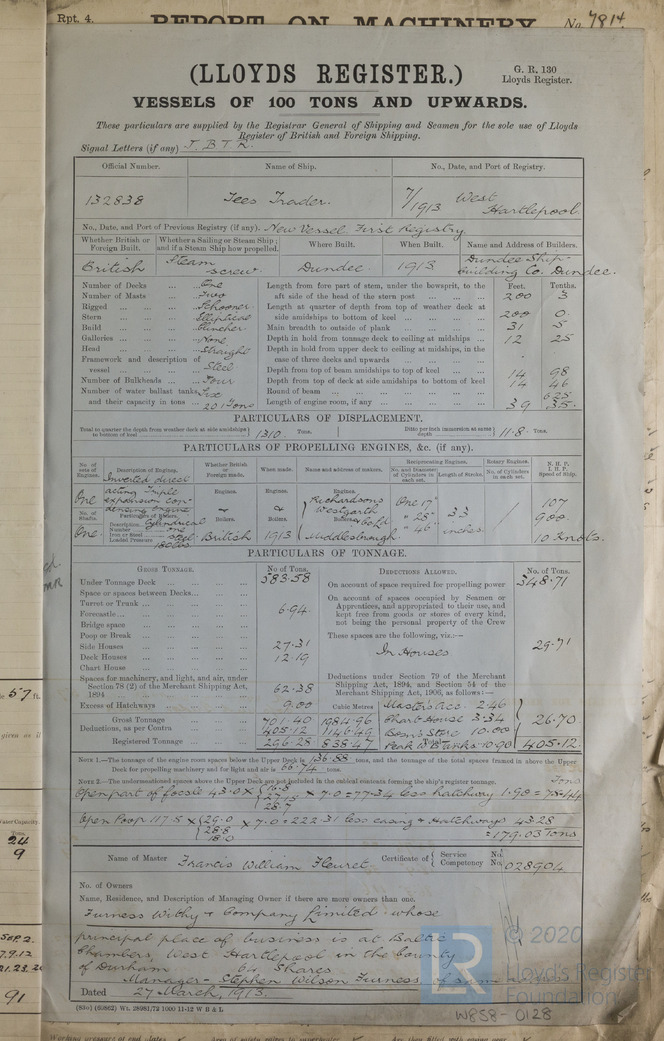 Rpt. 4. REPORT ON MACHINERY No. 7814.
(LLOYDS REGISTER.)
G. R. 130
Lloyds Register.
VESSELS OF 100 TONS AND UPWARDS.
These particulars are supplied by the Registrar General of Shipping and Seamen for the sole use of Lloyds
Register of British and Foreign Shipping.
Signal Letters (if any) J. B. T. R.
Official Number. Name of Ship. No., Date, and Port of Registry.
132838 Tees Trader. 7/1913 West
Hartlepool.
No., Date, and Port of Previous Registry (if any). New Vessel First Registry.
Whether British or Foreign Built. Whether a Sailing or Steam Ship; and if a Steam Ship how propelled. Where Built. When Built. Name and Address of Builders.
British Steam screw. Dundee. 1913. Dundee Ship-building Co. Dundee.
Number of Decks ... One
Number of Masts ... Two
Rigged ... Schooner
Stern ... Elliptical
Build ... Clincher
Galleries ... None
Head ... Straight
Framework and description of
vessel ... Steel
Number of Bulkheads ... Four
Number of water ballast tanks, Six
and their capacity in tons ... 201 Tons
Feet. Tenths.
Length from fore part of stem, under the bowsprit, to the
aft side of the head of the stern post ... 200 3
Length at quarter of depth from top of weather deck at
side amidships to bottom of keel ... 200 0
Main breadth to outside of plank ... 31 5
Depth in hold from tonnage deck to ceiling at midships ... 12 25
Depth in hold from upper deck to ceiling at midships, in the
case of three decks and upwards ... - -
Depth from top of beam amidships to top of keel ... 14 98
Depth from top of deck at side amidships to bottom of keel 14 46
Round of beam ... 625
Length of engine room, if any ... 39 35
PARTICULARS OF DISPLACEMENT.
Total to quarter the depth from weather deck at side amidships to bottom of keel 1310 Tons. Ditto per inch immersion at same depth 11.8 Tons.
PARTICULARS OF PROPELLING ENGINES, &c. (if any).
No. of sets of Engines. Description of Engines. Whether British or Foreign made. When made. Name and address of makers. Reciprocating Engines. No. and Diameter of Cylinders in each set. Length of Stroke. Rotary Engines. No. of Cylinders in each set. N. H. P. I. H. P. Speed of Ship.
One Inverted direct
acting Triple
expansion con-
densing engine
Engines. Engines. Engines.
Richardsons
Westgarth
& Co Ld
Middlesbrough.
One 17"
" 28"
" 46"
33
inches.
107
900
10 Knots.
No. of Shafts. Particulars of Boilers.
One. Description Cylindrical
Number one
Iron or Steel steel
Loaded Pressure 180 lbs.
Boilers. British Boilers. 1913 Boilers.
PARTICULARS OF TONNAGE.
GROSS TONNAGE. No of Tons.
Under Tonnage Deck ... 583.58
Space or spaces between Decks ...
Turret or Trunk ...
Forecastle ... 6.94
Bridge space
Poop or Break
Side Houses ... 27.31
Deck Houses ... 12.19
Chart House
Spaces for machinery, and light, and air, under
Section 78 (2) of the Merchant Shipping Act,
1894 ... 62.38
Excess of Hatchways ... 9.00
Cubic Metres
Gross Tonnage 701.40 1984.96
Deductions, as per Contra 405.12 1146.49
Registered Tonnage 296.28 838.47
DEDUCTIONS ALLOWED. No. of Tons.
On account of space required for propelling power 348.71
On account of spaces occupied by Seamen or
Apprentices, and appropriated to their use, and
kept free from goods or stores of every kind,
not being the personal property of the Crew
These spaces are the following, viz.:—
In Houses 29.71
Deductions under Section 79 of the Merchant
Shipping Act, 1894, and Section 54 of the
Merchant Shipping Act, 1906, as follows:—
Master's acc. 2.46
Chart House 3.34
Bosn's Store 10.00
Peak B Tanks 10.90
26.70
405.12
NOTE 1.—The tonnage of the engine room spaces below the Upper Deck is 136.88 tons, and the tonnage of the total spaces framed in above the Upper
Deck for propelling machinery and for light and air is 66.74 tons.
NOTE 2.—The undermentioned spaces above the Upper Deck are not included in the cubical contents forming the ship's register tonnage. Tons
Open part of focsle 43.0 x {16.8 27.15 28.7 x 7.0 = 77.34 less hatchway 1.90 = 75.44
Open Poop 117.5 x {29.0 28.8 18.0 x 7.0 = 222.31 less casing & Hatchways 43.28
= 179.03 Tons
Name of Master Francis William Fleuret Certificate of { Service No. Competency No. 028904
No. of Owners
Name, Residence, and Description of Managing Owner if there are more owners than one.
Furness Withy & Company Limited whose
principal place of business is at Baltic
Chambers, West Hartlepool in the County
of Durham 64 Shares
Manager - Stephen Wilson Furness, of same
Dated 27 March, 1913.
(83o) (60862) Wt. 28981/72 1000 11-12 W B & L
© 2020
LR
Lloyd's Register
Foundation
W858-0128